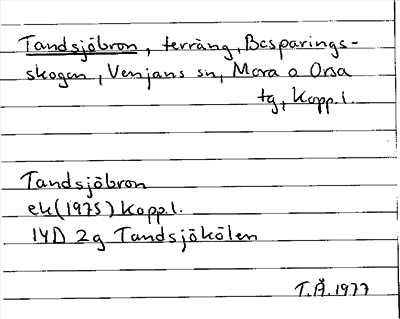 Tandsjöbron, terräng, Besparings-
skogen, Venjans sn, Mora o Orsa
tg, Kopp.l.
Tandsjöbron
ek (1975) Kopp.l.
14D 2g Tandsjökölen
T.Å. 1977